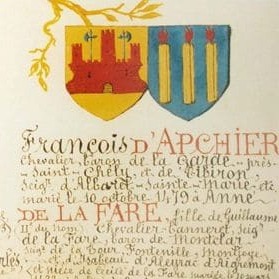 François D'APCHIER
Chevalier, baron de la Garde-près-
-Saint-Chély et de Thiron
Seigr d'Albaret-Sainte-Marie, etc
marié le 10 octobre 1479 à Anne
DE LA FARE, fille de Guillaume
IIe du nom Chevalier-Banneret, Seigr
de la Fare, baron de Montclar
Seigr de la Tour, Fontenille, Montjoye
et d'Isabeau d'Alexaac d'Aigremont
et nièce de